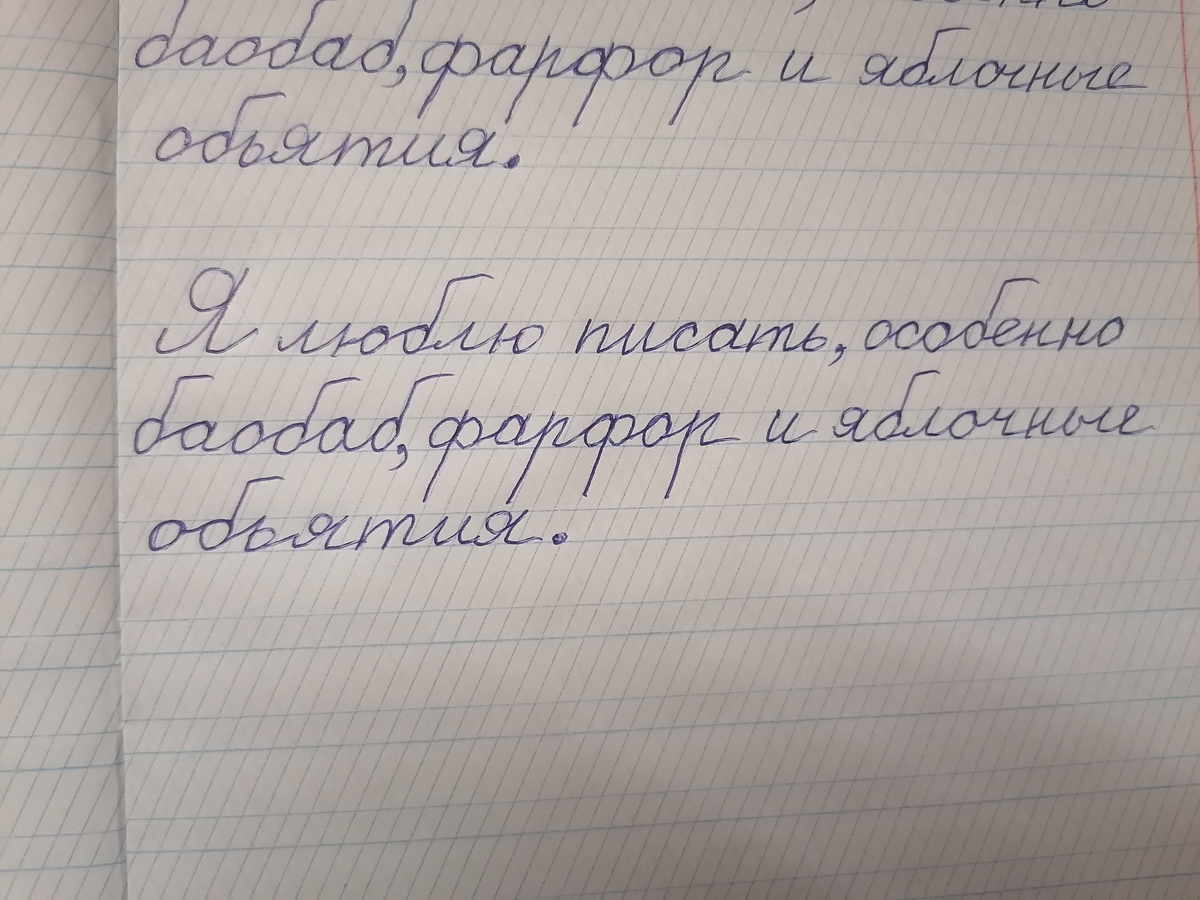 баобаб, фарфор и яблочные
обьятия.
Я люблю писать, особенно
баобаб, фарфор и яблочные
обьятия.